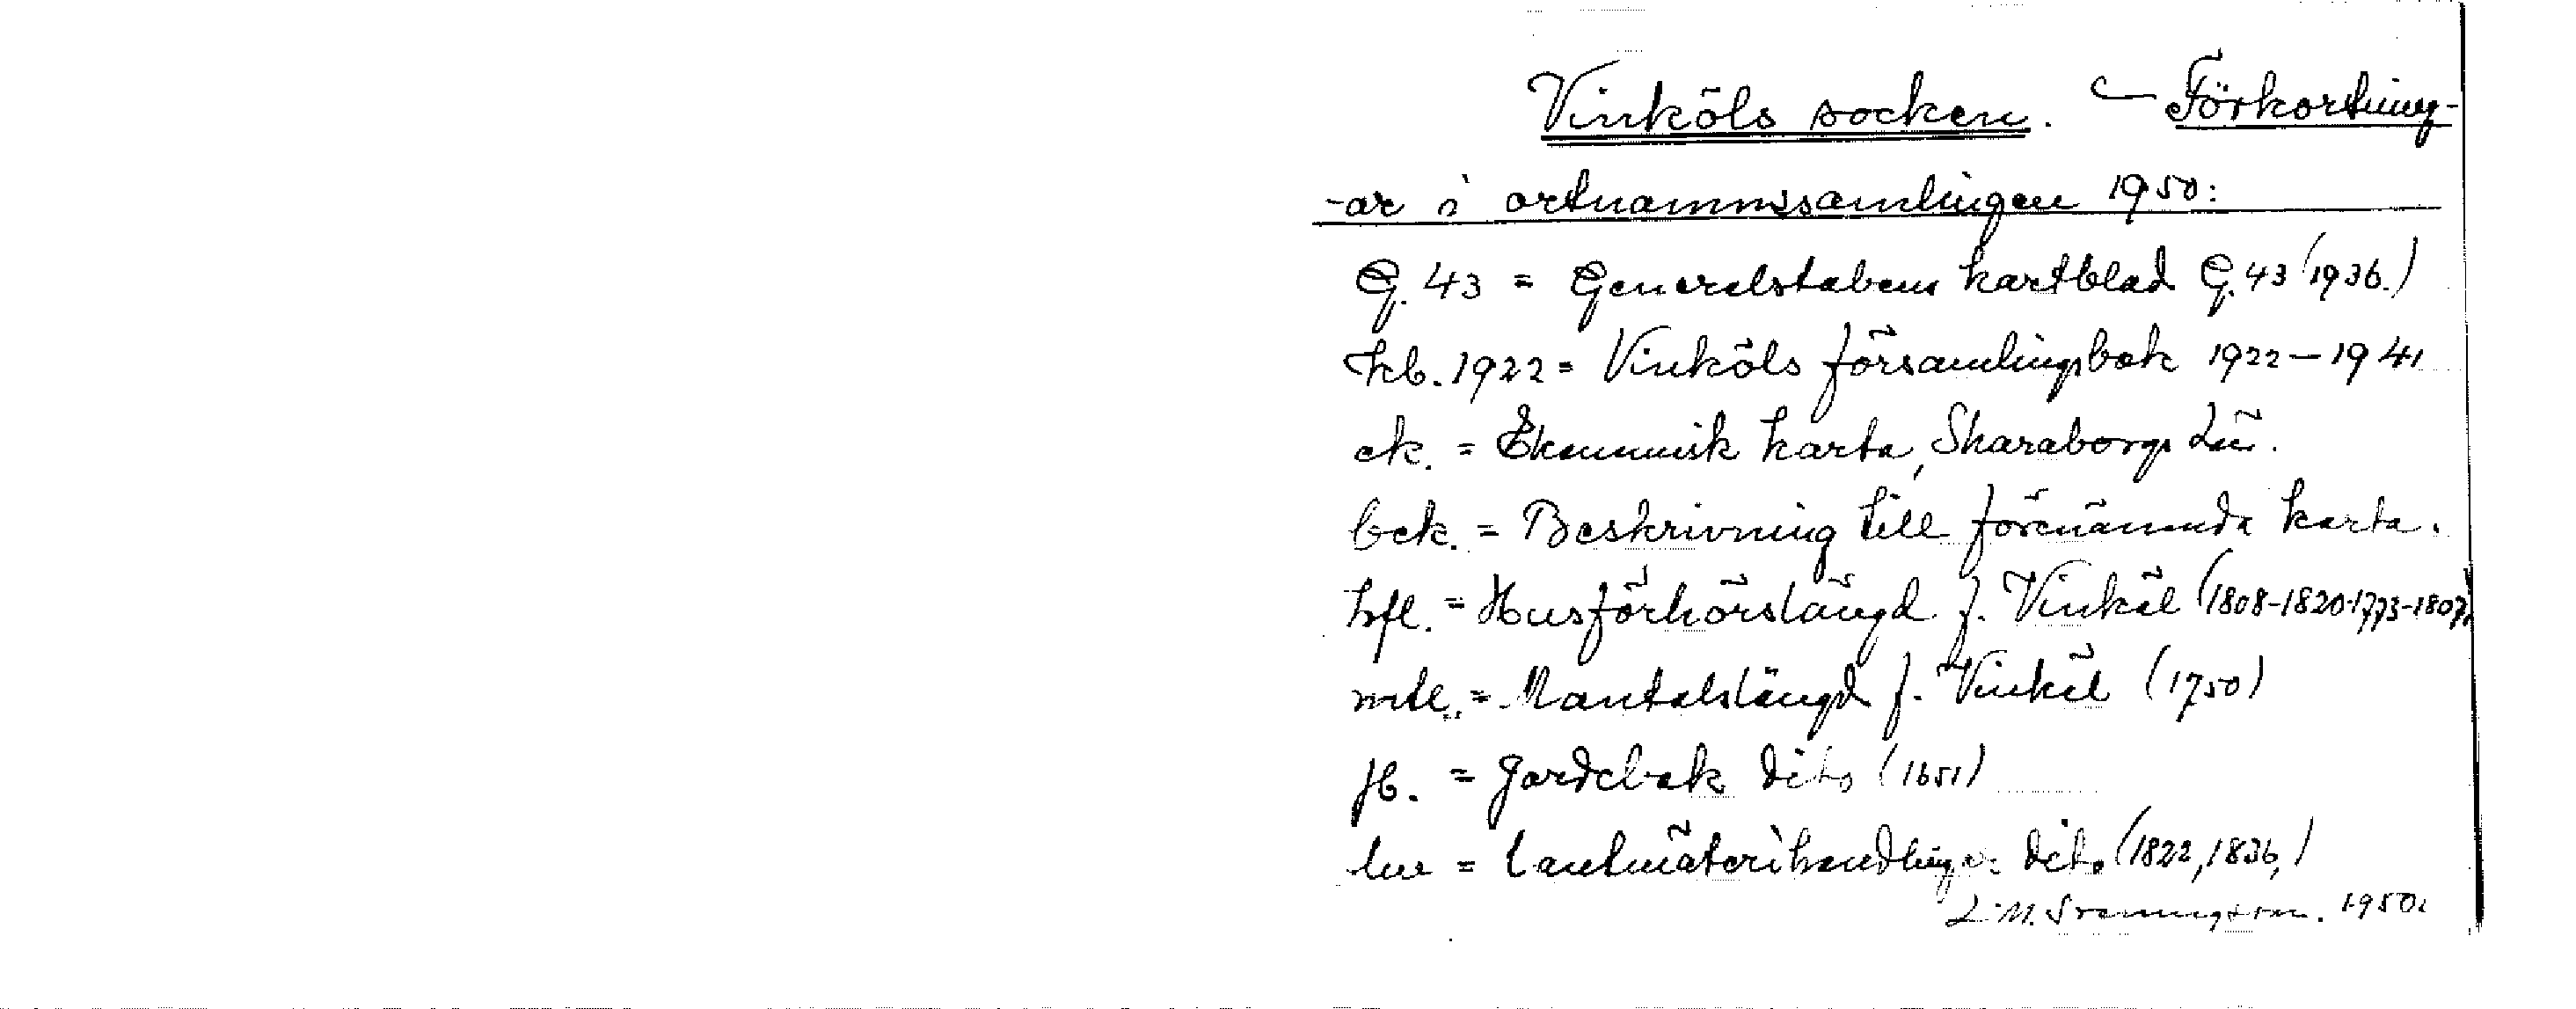 Vinköls socken. – Förkortning-
-ar i ortnamnssamlingen 1950:
G. 43 = Generalstabens kartblad G. 43 (1936.)
kb. 1922 = Vinköls församlingsbok 1922 – 1941
ek. = Ekonomisk karta, Skaraborgs län.
bek. = Beskrivning till förenämnda karta.
hfl. = Husförhörslängd f. Vinköl (1808-1820-1773-1807)
mtl. = Mantalslängd f. Vinköl (1750)
jb. = Jordebok dito (1651)
lm = Lantmäterihandlingar dito (1822, 1836,)
1950.